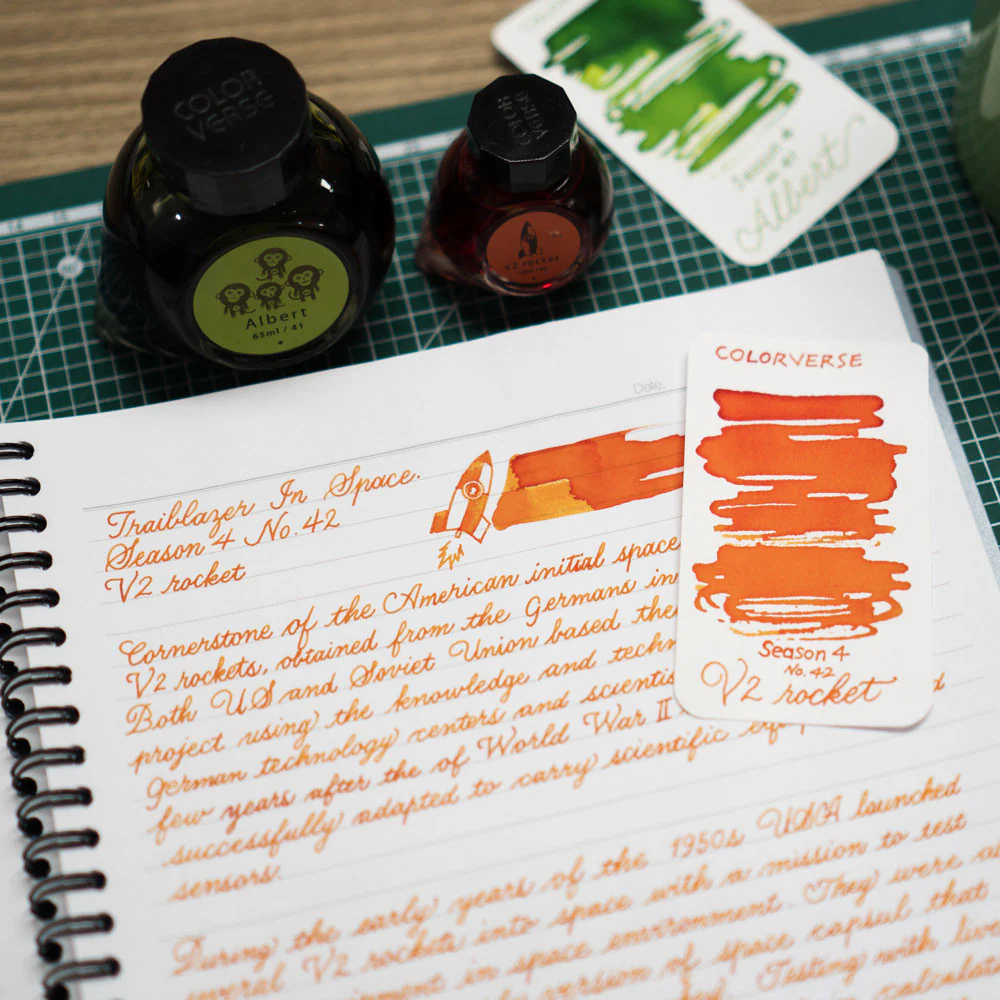 COLOR
VERSE
Albert
65ml / 41
COLOR
VERSE
V2 rocket
Season 4
Albert
Date.
COLORVERSE
Season 4
No. 42
V2 rocket
Traiblazer In Space.
Season 4 No. 42
V2 rocket
Cornerstone of the American initial space
V2 rockets, obtained from the Germans in
Both US and Soviet Union based the
project using the knowledge and techn
German technology centers and scientis
few years after the of World War II
successfully adapted to carry scientific
sensors.
During the early years of the 1950s USA launched
several V2 rockets into space with a mission to test
in space environment. They were
version of space capsul that
Testing with live